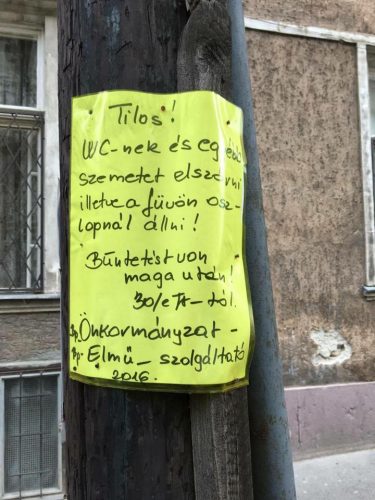 Tilos!
WC-nek és egyéb
szemetet elszórni
illetve a füvön osz-
lopnál állni!
Büntetést von
maga után!
30/eFt-tól.
Önkormányzat -
Elmű - szolgáltató
2016.